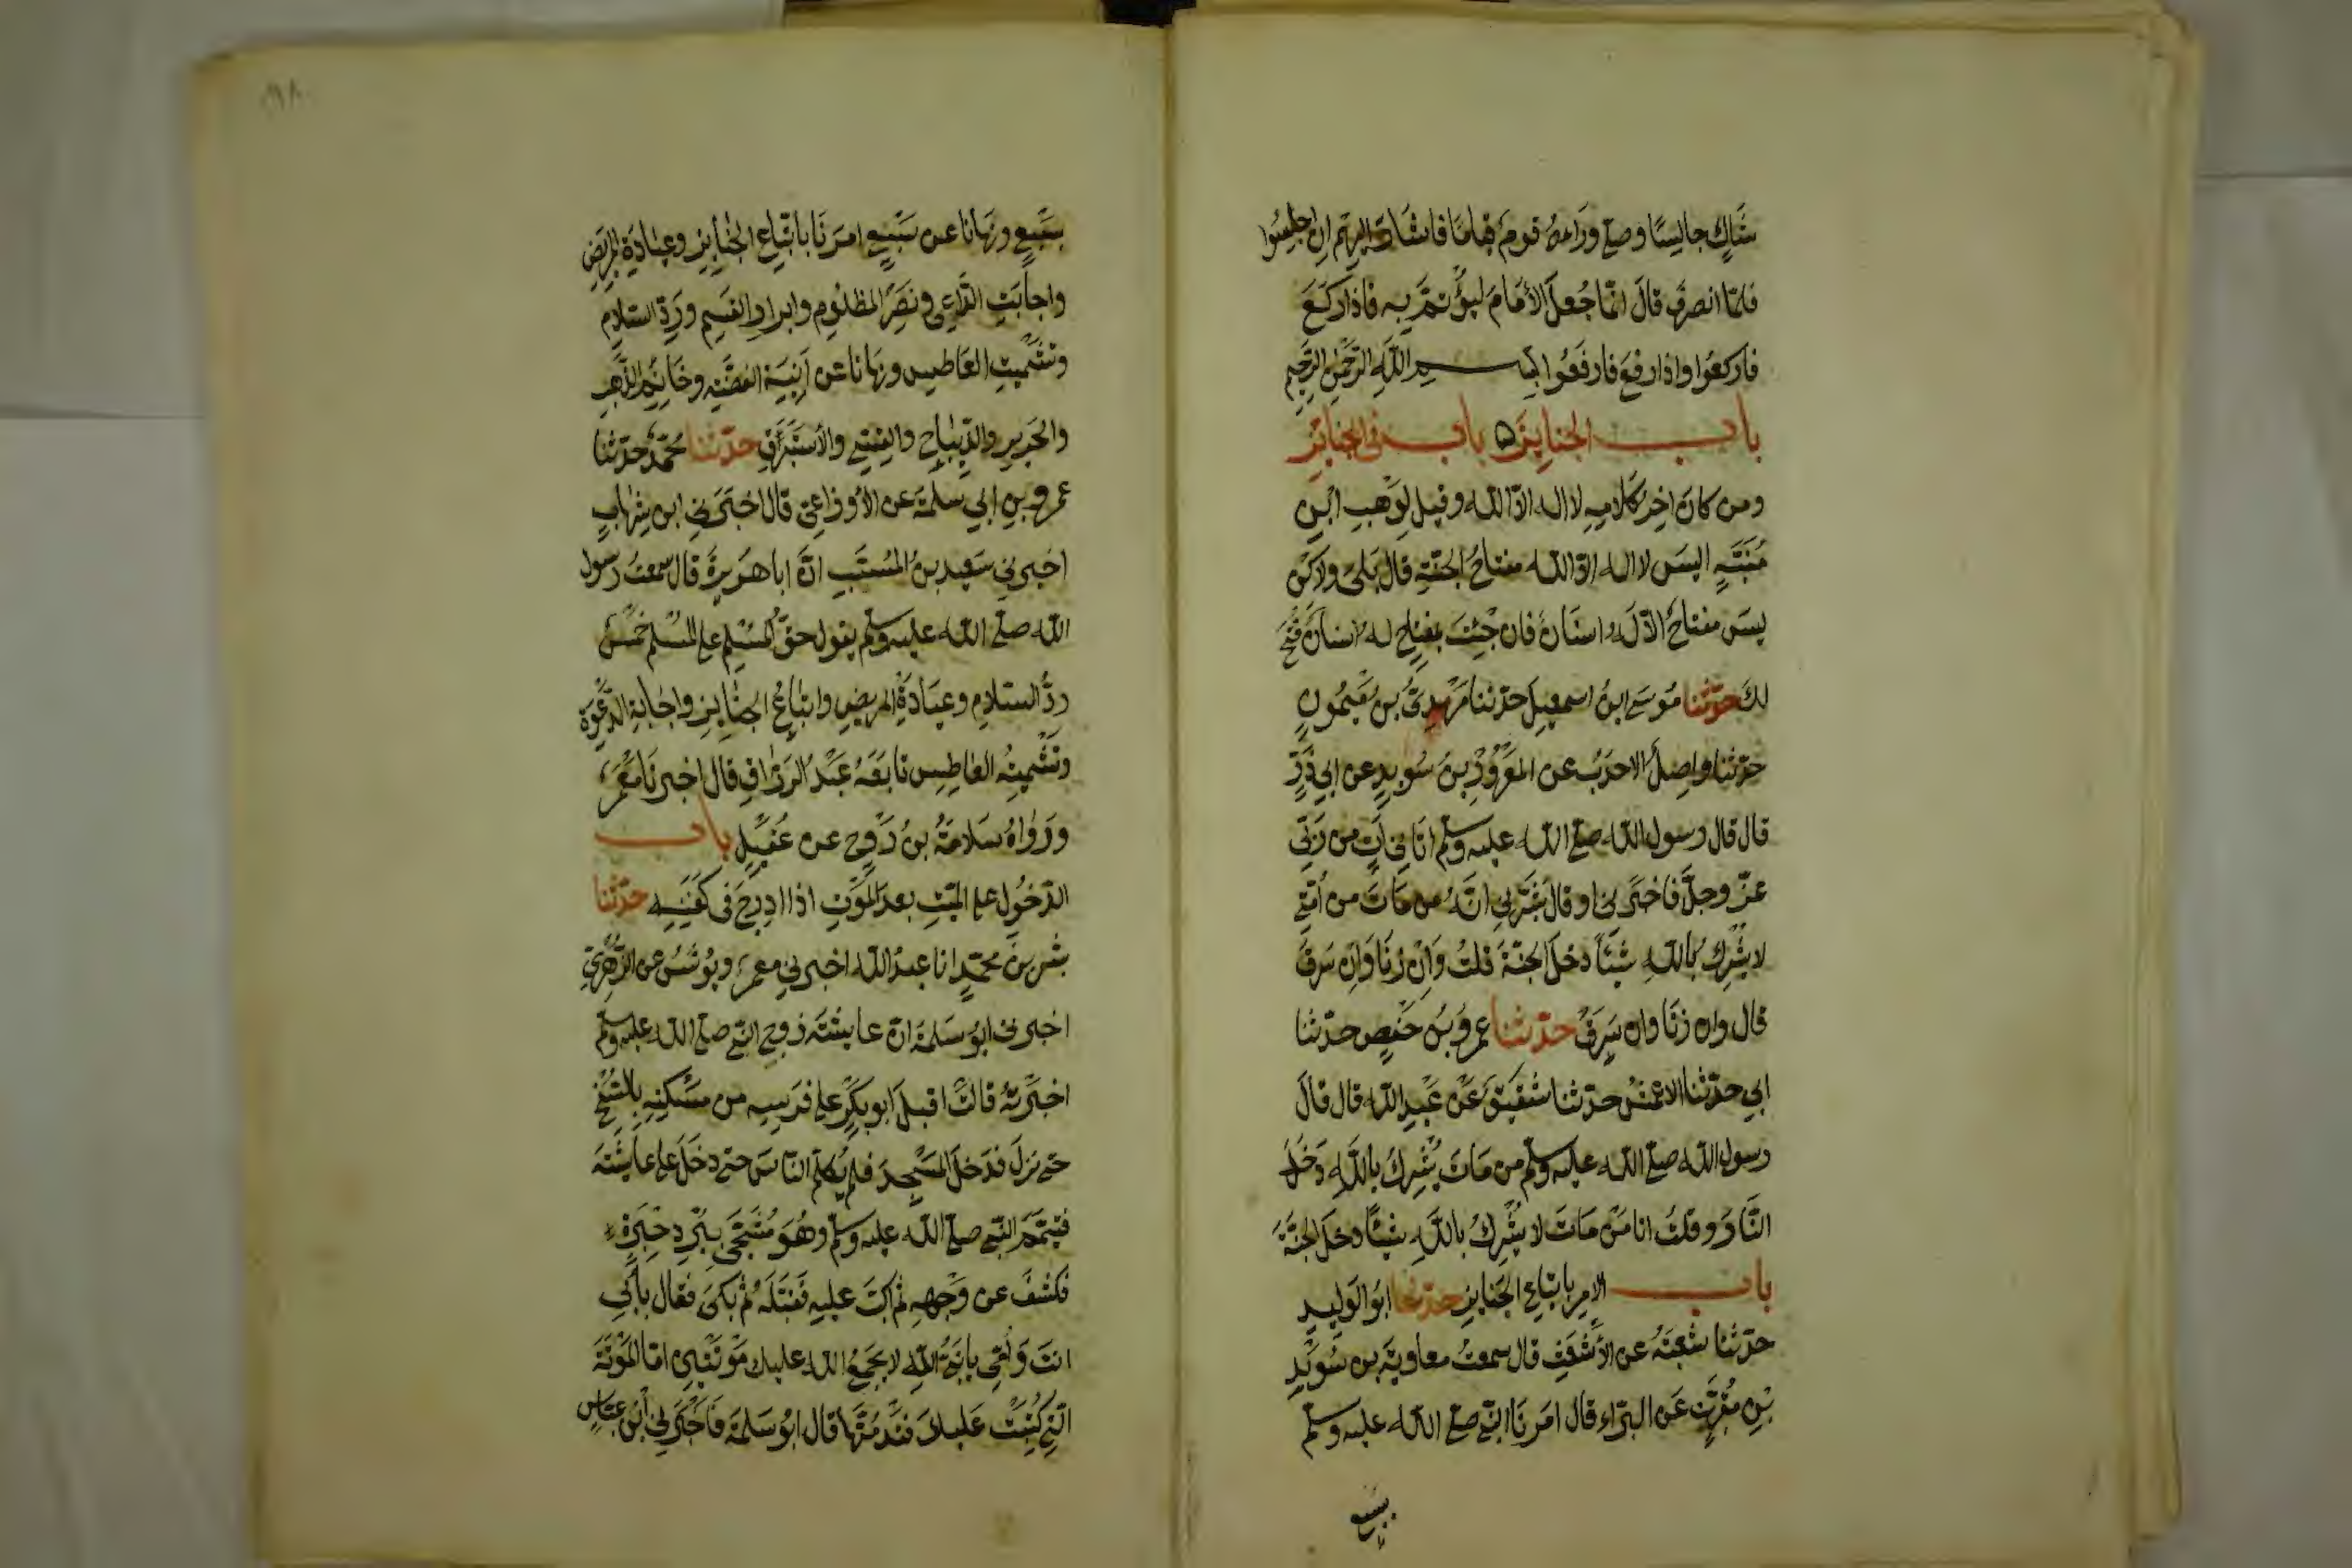 شاك جالسا وصلى وراءه قوم قياما فاشار اليهم ان اجلسوا
فلما انصرف قال انما جعل الأمام ليؤتم به فاذا ركع
فاركعوا واذا رفع فارفعوا بسم الله الرحمن الرحيم
باب الجنايز ه باب في الجنايز
ومن كان اخر كلامه لا اله الا الله وقيل لوهب ابن
منبه اليس لا اله الا الله مفتاح الجنة قال بلى ولاكن
ليس مفتاح الا له اسنان فان جئت بمفتاح له اسنان فتح
لك حدثنا موسى ابن اسمعيل حدثنا مهدى بن ميمون
حدثنا واصل الاحدب عن المعرور بن سويد عن ابي ذر
قال قال رسول الله صلى الله عليه وسلم اتاني ات من ربي
عز وجل فاخبرني او قال بشرني انه من مات من أمتي
لا يشرك بالله شيئا دخل الجنة قلت وان زنا وان سرق
قال وان زنا وان سرق حدثنا عمرو بن حفص حدثنا
ابي حدثنا الاعمش حدثنا شقيق عن عبد الله قال قال
رسول الله صلى الله عليه وسلم من مات يشرك بالله دخل
النار وقلت انا من مات لا يشرك بالله شيئا دخل الجنة
باب الامر باتباع الجنايز حدثنا ابو الوليد
حدثنا شعبة عن الأشعث قال سمعت معاوية بن سويد
بن مقرن عن البراء قال امرنا النبي صلى الله عليه وسلم
بسبع
١٩٨
بسبع ونهانا عن سبع امرنا باتباع الجنايز وعيادة المريض
واجابت الداعى ونصر المظلوم وابرار القسم ورد السلام
وتشميت العاطس ونهانا عن آنية الفضة وخاتم الذهب
والحرير والديباج والقسي والأستبرق حدثنا محمد حدثنا
عمرو بن ابي سلمة عن الأوزاعى قال اخبرني ابن شهاب
اخبرني سعيد بن المسيب ان ابا هريرة قال سمعت رسول
الله صلى الله عليه وسلم يقول حق المسلم على المسلم خمس
رد السلام وعيادة المريض واتباع الجنايز واجابة الدعوة
وتشميته العاطس تابعه عبد الرزاق قال اخبرنا معمر
ورواه سلامة بن روح عن عقيل باب
الدخول على الميت بعد الموت اذا ادرج في كفنه حدثنا
بشر بن محمد انا عبد الله اخبرني معمر ويونس عن الزهري
اخبرني ابو سلمة ان عايشة زوج النبي صلى الله عليه وسلم
اخبرته قالت اقبل ابو بكر على فرسه من مسكنه بالسنح
حتى نزل فدخل المسجد فلم يكلم الناس حتى دخل على عايشة
فيتمم النبي صلى الله عليه وسلم وهو مسجى ببرد حبرة
فكشف عن وجهه ثم اكب عليه فقبله ثم بكى فقال بأبي
انت وأمي يا نبي الله لا يجمع الله عليك موتتين اما الموتة
التي كتبت عليك فقد متها قال ابو سلمة فاخبرني ابن عباس